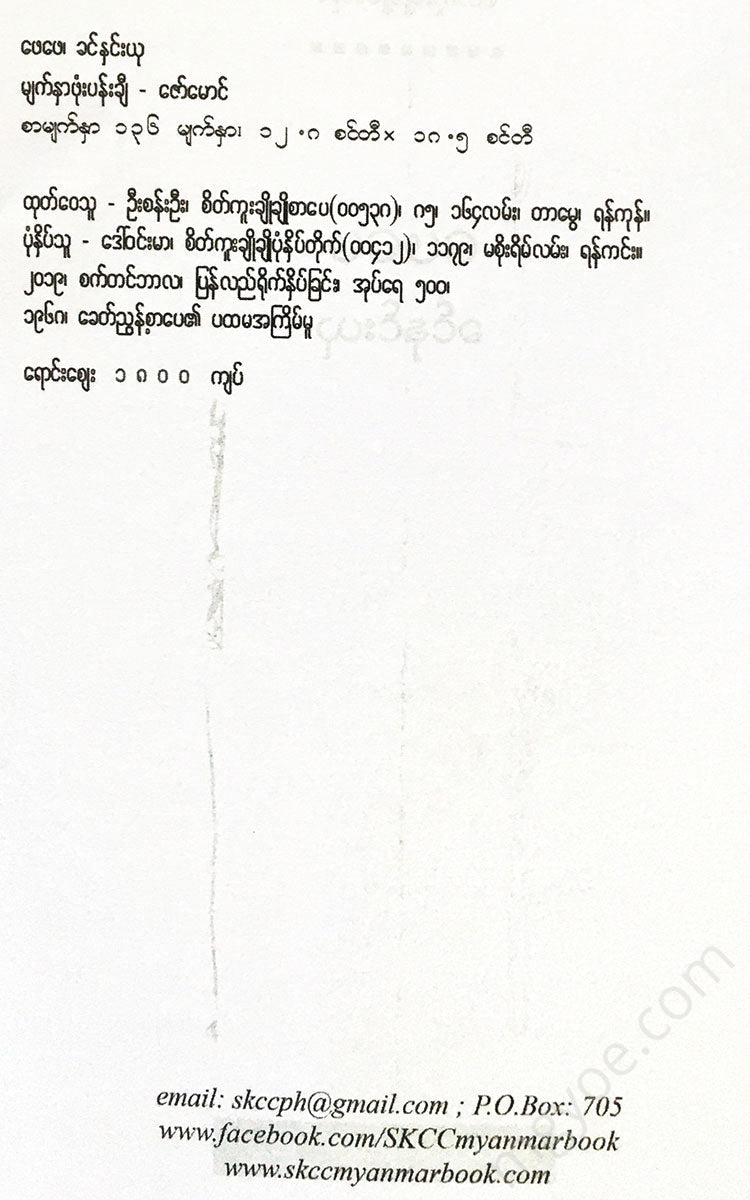 ဖေဖေ၊ ခင်နှင်းယု
မျက်နှာဖုံးပန်းချီ - ဇော်မောင်
စာမျက်နှာ ၁၃၆ မျက်နှာ၊ ၁၂.၈ စင်တီ× ၁၈.၅ စင်တီ
ထုတ်ဝေသူ - ဦးစန်းဦး၊ စိတ်ကူးချိုချိုစာပေ(၀၀၅၃၈)၊ ၈၅၊ ၁၆၄လမ်း၊ တာမွေ၊ ရန်ကုန်။
ပုံနှိပ်သူ - ဒေါ်ဝင်းမာ၊ စိတ်ကူးချိုချိုပုံနှိပ်တိုက်(၀၀၄၁၂)၊ ၁၁၇၉၊ မစိုးရိမ်လမ်း၊ ရန်ကင်း။
၂၀၁၉၊ စက်တင်ဘာလ၊ ပြန်လည်ရိုက်နှိပ်ခြင်း၊ အုပ်ရေ ၅၀၀၊
၁၉၆၈၊ ခေတ်ညွန့်စာပေ၏ ပထမအကြိမ်မူ
ရောင်းဈေး ၁၈၀၀ ကျပ်
email: skccph@gmail.com ; P.O.Box: 705
www.facebook.com/SKCCmyanmarbook
www.skccmyanmarbook.com